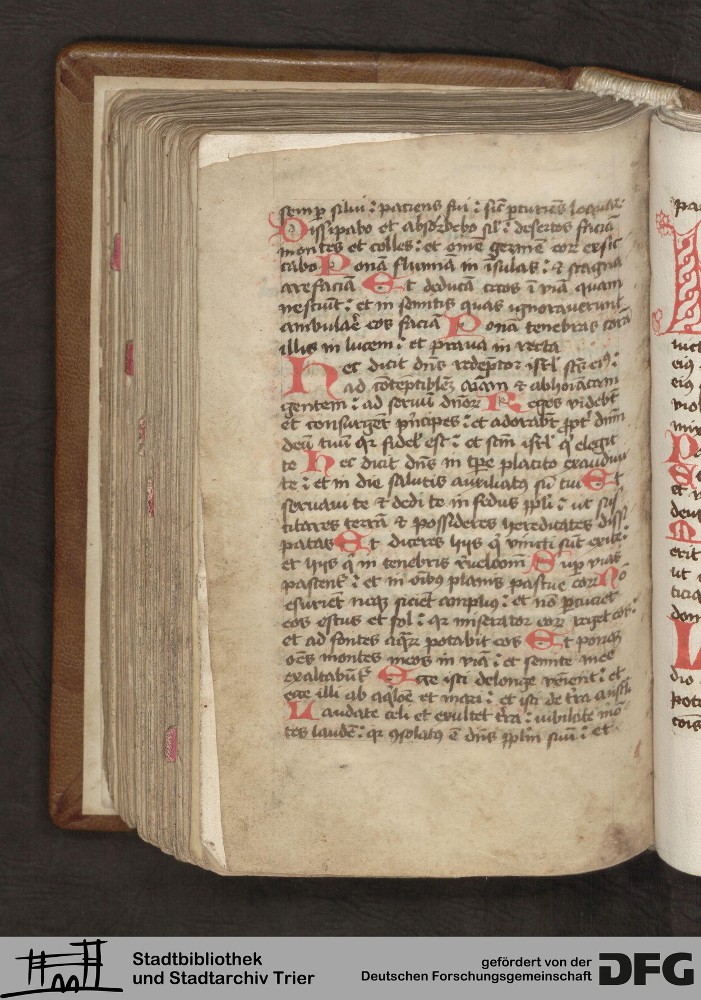 semp silui : paciens fui : sic pturiens loquar
Dissipabo et absorbebo sil : desertos faciā
montes et colles : et omē germē eor exsic
cabo Ponā flumīa in īsulas : et stagna
arefaciā Et ducā cecos ī viā quam
nesciūt : et in semitis quas ignoraverunt
ambulare eos faciā Ponā tenebras corā
illis in lucem : et prava in recta
Hec dicit dns redēptor isrl scs eiꝰ :
ad cōtēptibilē aīam et abhoīatam
gentem : ad servū dnor Reges videbt
et consurgēt pncipes : et adorabt ppt dnm
deū tuū qr fidel est : et scm isrl q elegit
te Hec dicit dns in tpe placito exaudivi
te : et in die salutis auxiliatꝰ sū tui Et
servavi te et dedi te in fedus ppli : ut sus
citares terrā et possideres hereditates dissi
patas Et diceres hijs q vincti sūt exite :
et hijs q in tenebris revelamī Sup vias
pascent : et in oībus planis pascue eor Nō
esurient neqz sicient amplius : et nō pcuciet
eos estus et sol : qr miserator eor reget eos :
et ad fontes aqr potabit eos Et ponā
oēs montes meos in viā : et semite mee
exaltabūt Ecce isti delonge veient : et
ecce illi ab aqloē et mari : et isti de tra austli
Laudate celi et exultet tra : iubilate mō
tes laudē : qr ꝯsolatꝰ ē dns pplm suū : et
Stadtbibliothek
und Stadtarchiv Trier
gefördert von der
Deutschen Forschungsgemeinschaft
DFG